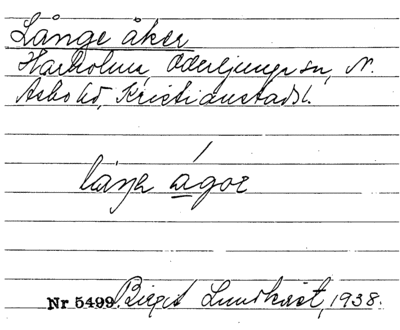 Långe åker
Harholma, Oderljunga sn, N.
Asbo hd, Kristianstads l.
låŋa ågor
Nr 5499. Birget Lundkvist, 1938.